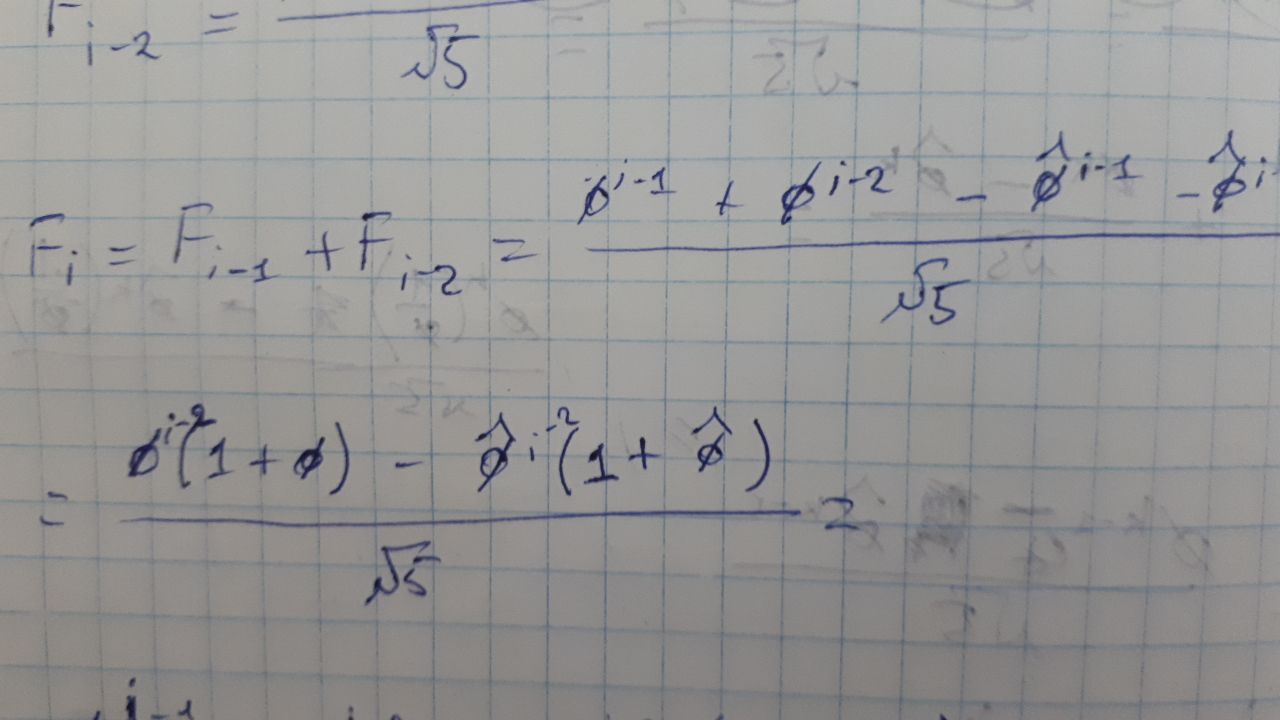 F_{i-2} = \frac{}{\sqrt{5}}
F_i = F_{i-1} + F_{i-2} = \frac{\phi^{i-1} + \phi^{i-2} - \hat{\phi}^{i-1} - \hat{\phi}^{i-}}{\sqrt{5}}
= \frac{\phi^{i-2}(1 + \phi) - \hat{\phi}^{i-2}(1 + \hat{\phi})}{\sqrt{5}} =
i-1